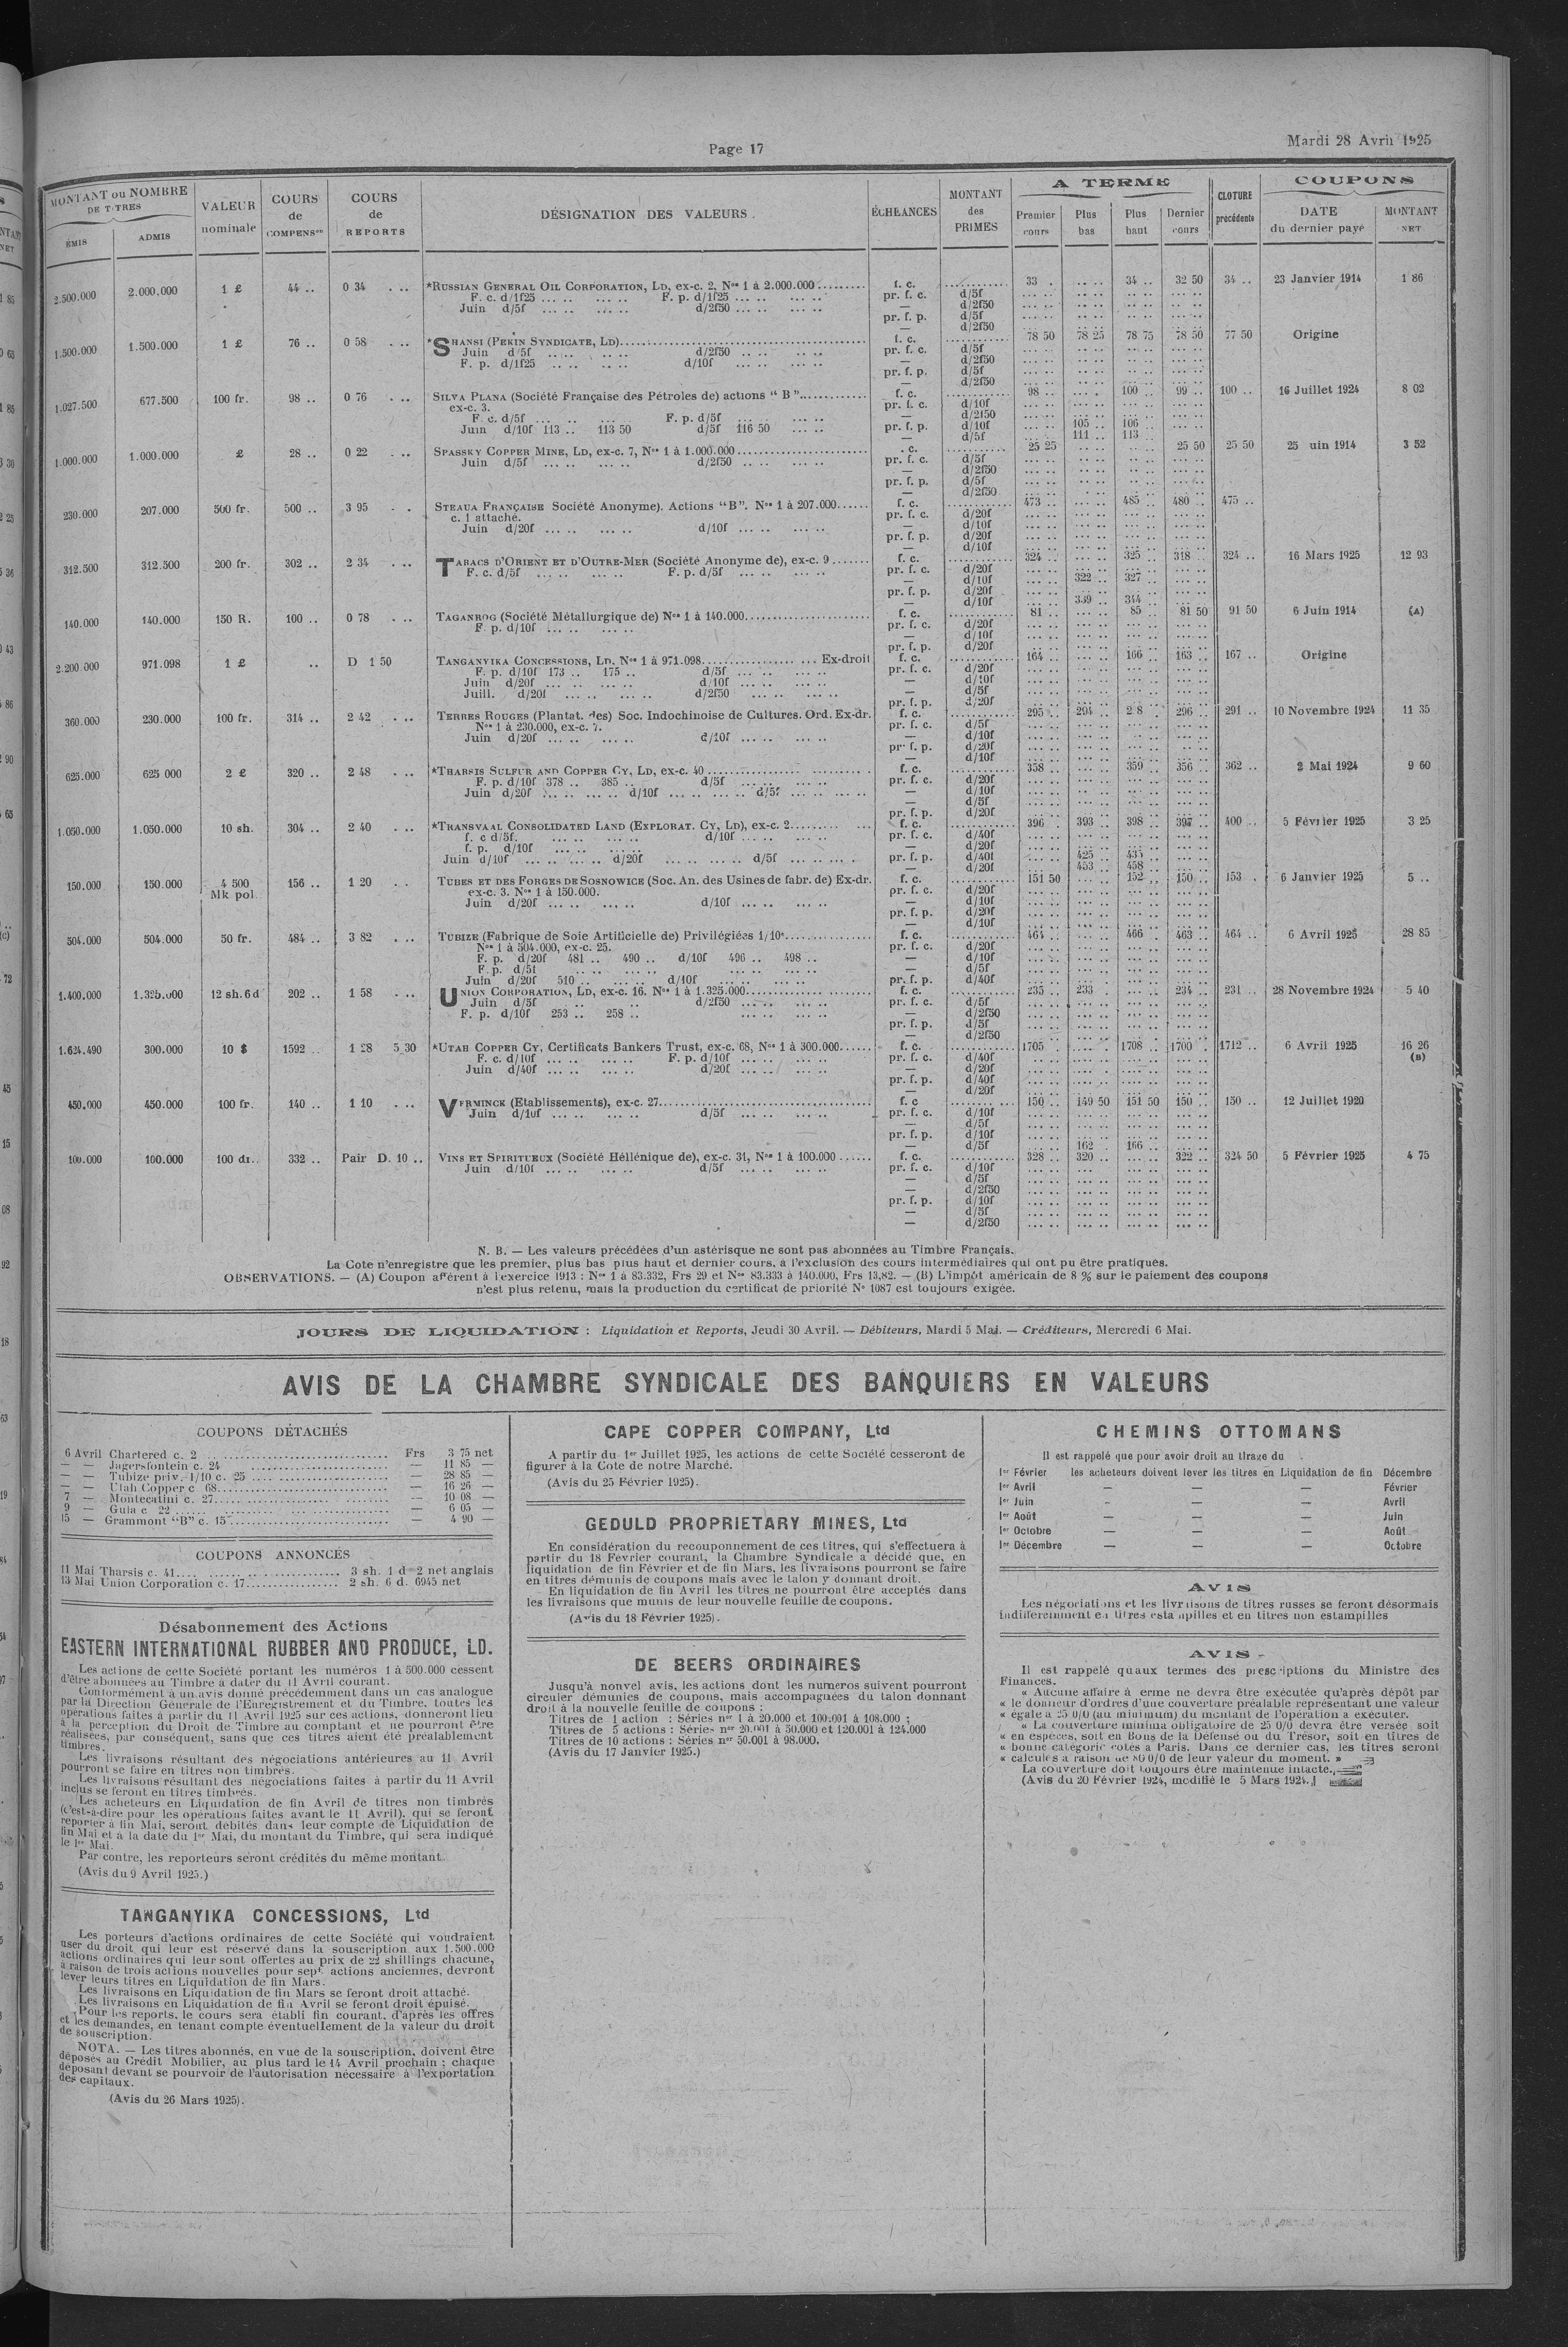 Page 17
Mardi 28 Avril 1925
MONTANT ou NOMBRE DE TITRES
ÉMIS
ADMIS
VALEUR nominale
COURS de COMPENSon
COURS de REPORTS
DÉSIGNATION DES VALEURS
ÉCHÉANCES
MONTANT des PRIMES
A TERME
Premier cours
Plus bas
Plus haut
Dernier cours
CLOTURE précédente
COUPONS
DATE du dernier payé
MONTANT NET
2.500.000 2.000.000 1 £ 44 .. 0 34 . .. *RUSSIAN GENERAL OIL CORPORATION, LD, ex-c. 2, Nos 1 à 2.000.000 f. c. 33 . ... .. 34 .. 32 50 34 .. 23 Janvier 1914 1 86
F. c. d/1f25 ... .. ... .. F. p. d/1f25 ... .. ... .. pr. f. c. d/5f
Juin d/5f ... .. ... .. d/2f50 ... .. ... .. — d/2f50
pr. f. p. d/5f
— d/2f50
1.500.000 1.500.000 1 £ 76 .. 0 58 . .. *SHANSI (PEKIN SYNDICATE, LD) f. c. 78 50 78 25 78 75 78 50 77 50 Origine
Juin d/5f ... .. ... .. d/2f50 ... .. ... .. pr. f. c. d/5f
F. p. d/1f25 ... .. ... .. d/10f ... .. ... .. — d/2f50
pr. f. p. d/5f
— d/2f50
1.027.500 677.500 100 fr. 98 .. 0 76 . .. SILVA PLANA (Société Française des Pétroles de) actions "B" f. c. 98 .. ... . 100 .. 99 .. 100 .. 16 Juillet 1924 8 02
ex-c. 3. pr. f. c. d/10f
F. c. d/5f ... .. ... F. p. d/5f ... .. ... .. — d/2f50
Juin d/10f 113 .. 113 50 d/5f 116 50 ... .. pr. f. p. d/10f ... .. 105 .. 106 ..
— d/5f ... .. 111 .. 113 ..
1.000.000 1.000.000 £ 28 .. 0 22 . .. SPASSKY COPPER MINE, LD, ex-c. 7, Nos 1 à 1.000.000 . c. 25 25 25 50 25 50 25 uin 1914 3 52
Juin d/5f ... .. ... .. d/2f50 ... .. ... .. pr. f. c. d/5f
— d/2f50
pr. f. p. d/5f
— d/2f50
230.000 207.000 500 fr. 500 .. 3 95 . . STEAUA FRANÇAISE Société Anonyme). Actions "B". Nos 1 à 207.000 f. c. 473 .. ... .. 485 .. 480 .. 475 ..
c. 1 attaché. pr. f. c. d/20f
Juin d/20f ... .. ... .. d/10f ... .. ... .. — d/10f
pr. f. p. d/20f
— d/10f
312.500 312.500 200 fr. 302 .. 2 34 . .. TABACS D'ORIENT ET D'OUTRE-MER (Société Anonyme de), ex-c. 9 f. c. 324 .. ... .. 325 .. 318 .. 324 .. 16 Mars 1925 12 93
F. c. d/5f ... .. ... .. F. p. d/5f ... .. ... .. pr. f. c. d/20f
— d/10f ... .. 322 .. 327 ..
pr. f. p. d/20f
— d/10f ... .. 339 .. 344 ..
140.000 140.000 150 R. 100 .. 0 78 . .. TAGANROG (Société Métallurgique de) Nos 1 à 140.000 f. c. 81 .. ... .. 85 .. 81 50 91 50 6 Juin 1914 (A)
F. p. d/10f ... .. ... .. pr. f. c. d/20f
— d/10f
pr. f. p. d/20f
2.200.000 971.098 1 £ .. D 1 50 TANGANYIKA CONCESSIONS, LD, Nos 1 à 971.098 ... Ex-droit f. c. 164 .. ... .. 166 .. 163 .. 167 .. Origine
F. p. d/10f 173 .. 175 .. d/5f ... .. ... .. pr. f. c. d/20f
Juin d/20f ... .. ... .. d/10f ... .. ... .. — d/10f
Juill. d/20f ... .. ... .. d/2f50 ... .. ... .. — d/5f
pr. f. p. d/20f
360.000 230.000 100 fr. 314 .. 2 42 . .. TERRES ROUGES (Plantat. des) Soc. Indochinoise de Cultures. Ord. Ex-dr. f. c. 295 .. 294 .. 2 8 . 296 .. 291 .. 10 Novembre 1924 11 35
Nos 1 à 230.000, ex-c. 7. pr. f. c. d/5f
Juin d/20f ... .. ... .. d/10f ... .. ... .. — d/10f
pr. f. p. d/20f
— d/10f
625.000 625 000 2 £ 320 .. 2 48 . .. *THARSIS SULFUR AND COPPER CY, LD, ex-c. 40 f. c. 358 .. ... .. 359 .. 356 .. 362 .. 2 Mai 1924 9 60
F. p. d/10f 378 .. 385 .. d/5f ... .. ... .. pr. f. c. d/20f
Juin d/20f ... .. ... .. d/10f ... .. ... .. d/5f ... .. ... .. — d/10f
— d/5f
pr. f. p. d/20f
1.050.000 1.050.000 10 sh. 304 .. 2 40 . .. *TRANSVAAL CONSOLIDATED LAND (EXPLORAT. CY, LD), ex-c. 2 f. c. 396 . 393 .. 398 .. 397 .. 400 .. 5 Février 1925 3 25
f. c d/5f. ... .. ... .. d/10f ... .. ... .. pr. f. c. d/40f
f. p. d/10f ... .. ... .. — d/20f
Juin d/10f ... .. ... .. d/20f ... .. ... .. d/5f ... .. ... . pr. f. p. d/40f ... .. 425 .. 435 ..
— d/20f ... .. 453 .. 458 ..
150.000 150.000 4 500 Mk pol. 156 .. 1 20 . . TUBES ET DES FORGES DE SOSNOWICE (Soc. An. des Usines de fabr. de) Ex-dr. f. c. 151 50 ... .. 152 .. 150 .. 153 . 6 Janvier 1925 5 ..
ex-c. 3. Nos 1 à 150.000. pr. f. c. d/20f
Juin d/20f ... .. ... .. d/10f ... .. ... .. — d/10f
pr. f. p. d/20f
— d/10f
504.000 504.000 50 fr. 484 .. 3 82 . .. TUBIZE (Fabrique de Soie Artificielle de) Privilégiées 1/10e f. c. 464 .. ... .. 466 . 463 .. 464 .. 6 Avril 1925 28 85
Nos 1 à 504.000, ex-c. 25. pr. f. c. d/20f
F. p. d/20f 481 .. 490 .. d/10f 496 .. 498 .. — d/10f
F. p. d/5f ... .. ... .. ... .. ... .. — d/5f
Juin d/20f 510 .. ... .. d/10f ... .. ... .. pr. f. p. d/40f
1.400.000 1.325.000 12 sh. 6 d 202 .. 1 58 . .. UNION CORPORATION, LD, ex-c. 16. Nos 1 à 1.325.000 f. c. 235 .. 233 .. ... .. 234 .. 231 .. 28 Novembre 1924 5 40
Juin d/5f ... .. ... .. d/2f50 ... .. ... .. pr. f. c. d/5f
F. p. d/10f 253 .. 258 .. ... .. ... .. — d/2f50
pr. f. p. d/5f
— d/2f50
1.624.490 300.000 10 $ 1592 .. 1 28 5 30 *UTAH COPPER CY, Certificats Bankers Trust, ex-c. 68, Nos 1 à 300.000 f. c. 1705 .. ... . 1708 .. 1700 .. 1712 .. 6 Avril 1925 16 26 (B)
F. c. d/10f ... .. ... .. F. p. d/10f ... .. ... .. pr. f. c. d/40f
Juin d/40f ... .. ... .. d/20f ... .. ... .. — d/20f
pr. f. p. d/40f
— d/20f
450.000 450.000 100 fr. 140 .. 1 10 . .. VERMINCK (Etablissements), ex-c. 27 f. c 150 .. 149 50 151 50 150 .. 150 .. 12 Juillet 1920
Juin d/10f ... .. ... .. d/5f ... .. ... .. pr. f. c. d/10f
— d/5f
pr. f. p. d/10f
— d/5f ... .. 162 .. 166 ..
100.000 100.000 100 dr. 332 .. Pair D. 10 .. VINS ET SPIRITUEUX (Société Héllénique de), ex-c. 31, Nos 1 à 100.000 f. c. 328 .. 320 .. ... .. 322 .. 324 50 5 Février 1925 4 75
Juin d/10f ... .. ... .. d/5f ... .. ... .. pr. f. c. d/10f
— d/5f
— d/2f50
pr. f. p. d/10f
— d/5f
— d/2f50
N. B. — Les valeurs précédées d'un astérisque ne sont pas abonnées au Timbre Français.
La Cote n'enregistre que les premier, plus bas plus haut et dernier cours, à l'exclusion des cours intermédiaires qui ont pu être pratiqués.
OBSERVATIONS. — (A) Coupon afférent à l'exercice 1913 : Nos 1 à 83.332, Frs 29 et Nos 83.333 à 140.000, Frs 13,82. — (B) L'impôt américain de 8 % sur le paiement des coupons
n'est plus retenu, mais la production du certificat de priorité N° 1087 est toujours exigée.
JOURS DE LIQUIDATION : Liquidation et Reports, Jeudi 30 Avril. — Débiteurs, Mardi 5 Mai. — Créditeurs, Mercredi 6 Mai.
AVIS DE LA CHAMBRE SYNDICALE DES BANQUIERS EN VALEURS
COUPONS DÉTACHÉS
6 Avril Chartered c. 2 Frs 3 75 net
— — Jagersfontein c. 24 — 11 85 —
— — Tubize priv. 1/10 c. 25 — 28 85 —
— — Utah Copper c 68 — 16 26 —
7 — Montecatini c. 27 — 10 08 —
9 — Gula c 22 — 6 05 —
15 — Grammont "B" c. 15 — 4 90 —
COUPONS ANNONCÉS
11 Mai Tharsis c. 41 3 sh. 1 d 2 net anglais
13 Mai Union Corporation c. 17 2 sh. 6 d. 6945 net
Désabonnement des Actions
EASTERN INTERNATIONAL RUBBER AND PRODUCE, LD.
Les actions de cette Société portant les numéros 1 à 500.000 cessent
d'être abonnées au Timbre à dater du 11 Avril courant.
Conformément à un avis donné précédemment dans un cas analogue
par la Direction Générale de l'Enregistrement et du Timbre, toutes les
opérations faites à partir du 11 Avril 1925 sur ces actions, donneront lieu
à la perception du Droit de Timbre au comptant et ne pourront être
réalisées, par conséquent, sans que ces titres aient été préalablement
timbrés.
Les livraisons résultant des négociations antérieures au 11 Avril
pourront se faire en titres non timbrés.
Les livraisons résultant des négociations faites à partir du 11 Avril
inclus se feront en titres timbrés.
Les acheteurs en Liquidation de fin Avril de titres non timbrés
(c'est-à-dire pour les opérations faites avant le 11 Avril), qui se feront
reporter à fin Mai, seront débités dans leur compte de Liquidation de
fin Mai et à la date du 1er Mai, du montant du Timbre, qui sera indiqué
le 1er Mai.
Par contre, les reporteurs seront crédités du même montant.
(Avis du 9 Avril 1925.)
TANGANYIKA CONCESSIONS, Ltd
Les porteurs d'actions ordinaires de cette Société qui voudraient
user du droit qui leur est réservé dans la souscription aux 1.500.000
actions ordinaires qui leur sont offertes au prix de 22 shillings chacune,
à raison de trois actions nouvelles pour sept actions anciennes, devront
lever leurs titres en Liquidation de fin Mars.
Les livraisons en Liquidation de fin Mars se feront droit attaché.
Les livraisons en Liquidation de fin Avril se feront droit épuisé.
Pour les reports, le cours sera établi fin courant, d'après les offres
et les demandes, en tenant compte éventuellement de la valeur du droit
de souscription.
NOTA. — Les titres abonnés, en vue de la souscription, doivent être
déposés au Crédit Mobilier, au plus tard le 14 Avril prochain ; chaque
déposant devant se pourvoir de l'autorisation nécessaire à l'exportation
des capitaux.
(Avis du 26 Mars 1925).
CAPE COPPER COMPANY, Ltd
A partir du 1er Juillet 1925, les actions de cette Société cesseront de
figurer à la Cote de notre Marché.
(Avis du 25 Février 1925).
GEDULD PROPRIETARY MINES, Ltd
En considération du recouponnement de ces titres, qui s'effectuera à
partir du 18 Février courant, la Chambre Syndicale a décidé que, en
liquidation de fin Février et de fin Mars, les livraisons pourront se faire
en titres démunis de coupons mais avec le talon y donnant droit.
En liquidation de fin Avril les titres ne pourront être acceptés dans
les livraisons que munis de leur nouvelle feuille de coupons.
(Avis du 18 Février 1925).
DE BEERS ORDINAIRES
Jusqu'à nouvel avis, les actions dont les numeros suivent pourront
circuler démunies de coupons, mais accompagnées du talon donnant
droit à la nouvelle feuille de coupons :
Titres de 1 action : Séries nos 1 à 20.000 et 100.001 à 108.000 ;
Titres de 5 actions : Séries nos 20.001 à 50.000 et 120.001 à 124.000
Titres de 10 actions : Séries nos 50.001 à 98.000.
(Avis du 17 Janvier 1925.)
CHEMINS OTTOMANS
Il est rappelé que pour avoir droit au tirage du
1er Février les acheteurs doivent lever les titres en Liquidation de fin Décembre
1er Avril — — — Février
1er Juin - — — Avril
1er Août — — — Juin
1er Octobre — — — Août
1er Décembre — — — Octobre
AVIS
Les négociations et les livraisons de titres russes se feront désormais
indifféremment en titres esta npillés et en titres non estampillés
AVIS
Il est rappelé quaux termes des prescriptions du Ministre des
Finances.
« Aucune affaire à erme ne devra être exécutée qu'après dépôt par
« le donneur d'ordres d'une couverture préalable représentant une valeur
« égale à 25 0/0 (au minimum) du montant de l'opération à exécuter.
« La couverture minima obligatoire de 25 0/0 devra être versée soit
« en espèces, soit en Bons de la Défense ou du Trésor, soit en titres de
« bonne catégorie cotés à Paris. Dans ce dernier cas, les titres seront
« calculés à raison de 80 0/0 de leur valeur du moment. »
La couverture doit toujours être maintenue intacte.
(Avis du 20 Février 1924, modifié le 5 Mars 1924.)